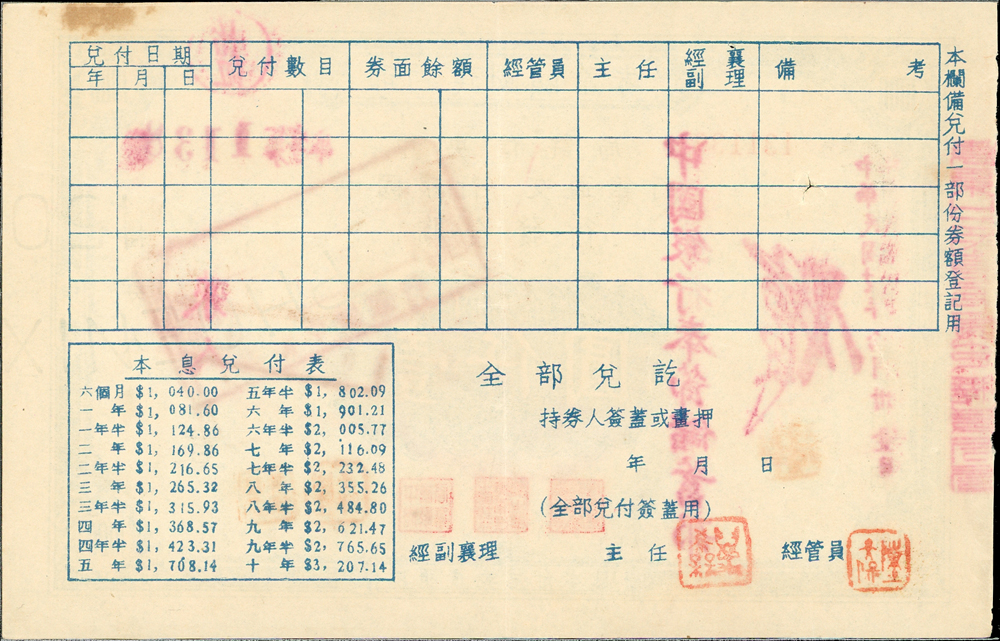 兌付日期 兌付數目 券面餘額 經管員 主任 經副襄理 備考
年 月 日
本欄備兌付一部份券額登記用
本息兌付表
六個月 $1,040.00 五年半 $1,802.09
一年 $1,081.60 六年 $1,901.21
一年半 $1,124.86 六年半 $2,005.77
二年 $1,169.86 七年 $2,116.09
二年半 $1,216.65 七年半 $2,232.48
三年 $1,265.32 八年 $2,355.26
三年半 $1,315.93 八年半 $2,484.80
四年 $1,368.57 九年 $2,621.47
四年半 $1,423.31 九年半 $2,765.65
五年 $1,708.14 十年 $3,207.14
全部兌訖
持券人簽蓋或畫押
年 月 日
(全部兌付簽蓋用)
經副襄理 主任 經管員